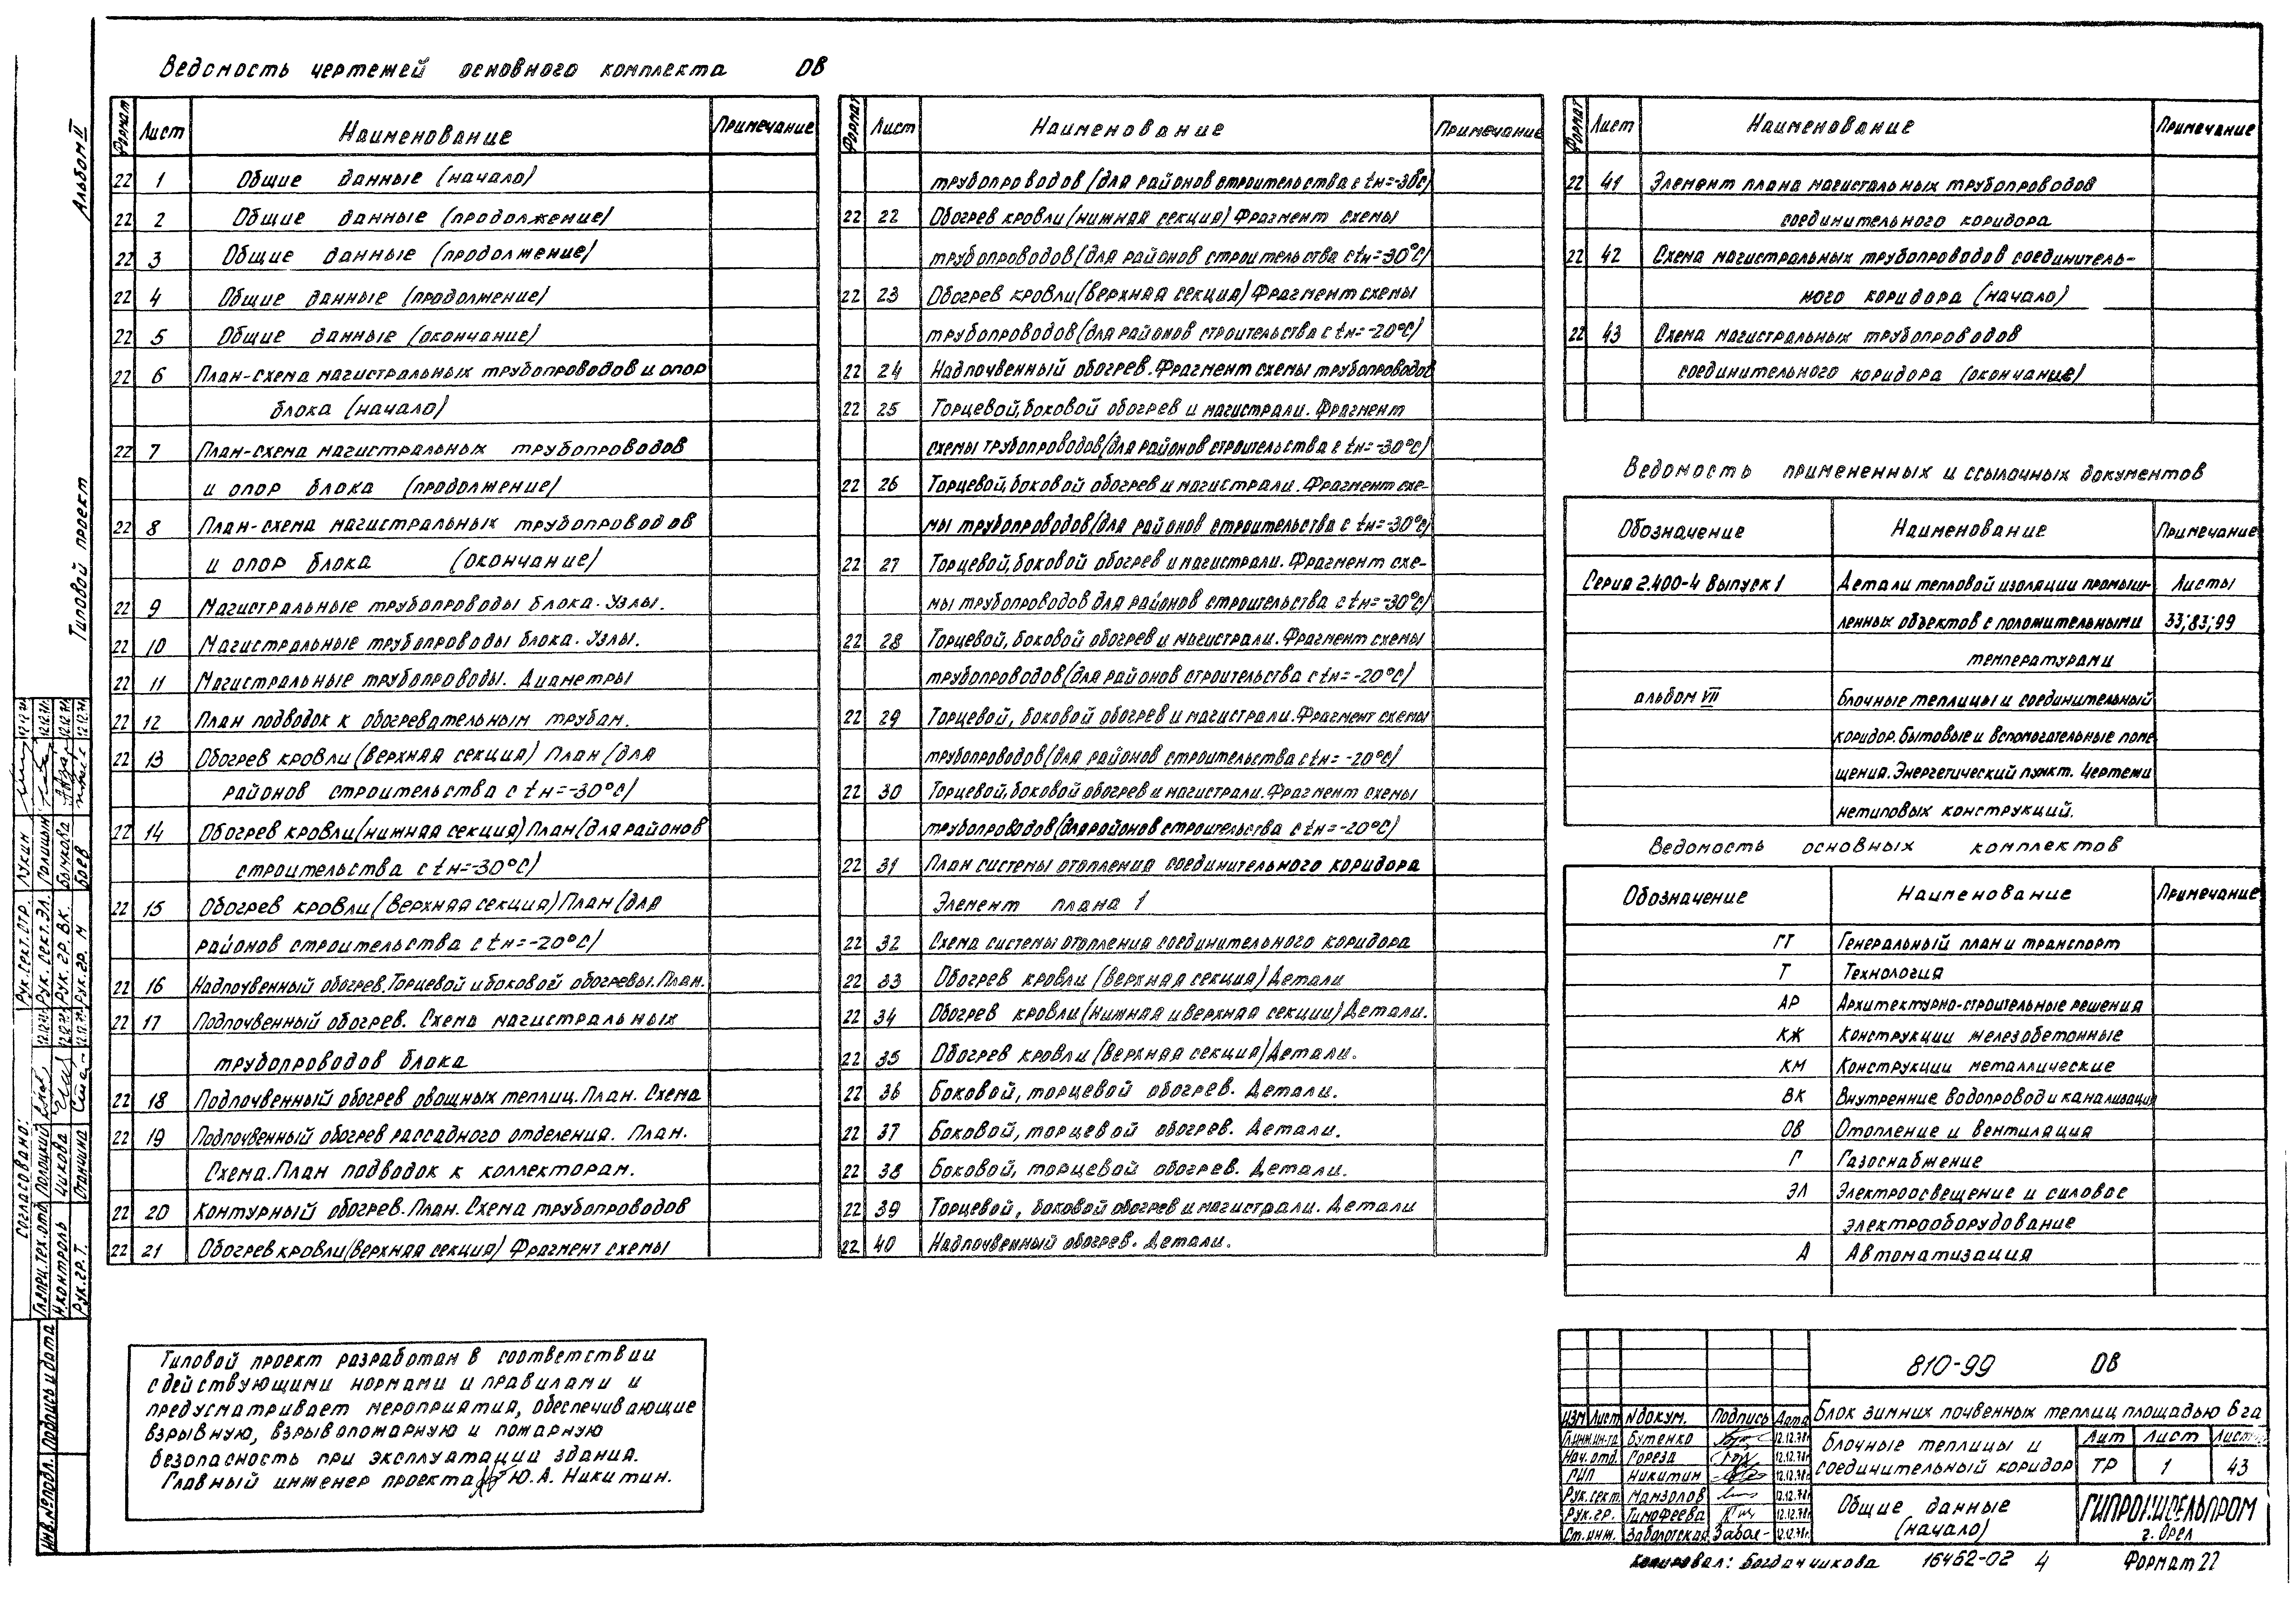 Ведомость чертежей основного комплекта ОВ
Формат Лист Наименование Примечание
22 1 Общие данные (начало)
22 2 Общие данные (продолжение)
22 3 Общие данные (продолжение)
22 4 Общие данные (продолжение)
22 5 Общие данные (окончание)
22 6 План-схема магистральных трубопроводов и опор
блока (начало)
22 7 План-схема магистральных трубопроводов
и опор блока (продолжение)
22 8 План-схема магистральных трубопроводов
и опор блока (окончание)
22 9 Магистральные трубопроводы блока. Узлы.
22 10 Магистральные трубопроводы блока. Узлы.
22 11 Магистральные трубопроводы. Диаметры
22 12 План подводок к обогревательным трубам.
22 13 Обогрев кровли (верхняя секция) План (для
районов строительства с tн=-30°С)
22 14 Обогрев кровли (нижняя секция) План (для районов
строительства с tн=-30°С)
22 15 Обогрев кровли (верхняя секция) План (для
районов строительства с tн=-20°С)
22 16 Надпочвенный обогрев. Торцевой и боковой обогревы. План.
22 17 Подпочвенный обогрев. Схема магистральных
трубопроводов блока
22 18 Подпочвенный обогрев овощных теплиц. План. Схема
22 19 Подпочвенный обогрев рассадного отделения. План.
Схема. План подводок к коллекторам.
22 20 Контурный обогрев. План. Схема трубопроводов
22 21 Обогрев кровли (верхняя секция) Фрагмент схемы
Формат Лист Наименование Примечание
трубопроводов (для районов строительства с tн=-30°С)
22 22 Обогрев кровли (нижняя секция) Фрагмент схемы
трубопроводов (для районов строительства с tн=-30°С)
22 23 Обогрев кровли (верхняя секция) Фрагмент схемы
трубопроводов (для районов строительства с tн=-20°С)
22 24 Надпочвенный обогрев. Фрагмент схемы трубопроводов
22 25 Торцевой, боковой обогрев и магистрали. Фрагмент
схемы трубопроводов (для районов строительства с tн=-30°С)
22 26 Торцевой, боковой обогрев и магистрали. Фрагмент схе-
мы трубопроводов (для районов строительства с tн=-30°С)
22 27 Торцевой, боковой обогрев и магистрали. Фрагмент схе-
мы трубопроводов для районов строительства с tн=-30°С)
22 28 Торцевой, боковой обогрев и магистрали. Фрагмент схемы
трубопроводов (для районов строительства с tн=-20°С)
22 29 Торцевой, боковой обогрев и магистрали. Фрагмент схемы
трубопроводов (для районов строительства с tн=-20°С)
22 30 Торцевой, боковой обогрев и магистрали. Фрагмент схемы
трубопроводов (для районов строительства с tн=-20°С)
22 31 План системы отопления соединительного коридора
Элемент плана 1
22 32 Схема системы отопления соединительного коридора
22 33 Обогрев кровли (верхняя секция) Детали
22 34 Обогрев кровли (нижняя и верхняя секции) Детали.
22 35 Обогрев кровли (верхняя секция) Детали.
22 36 Боковой, торцевой обогрев. Детали.
22 37 Боковой, торцевой обогрев. Детали.
22 38 Боковой, торцевой обогрев. Детали.
22 39 Торцевой, боковой обогрев и магистрали. Детали
22 40 Надпочвенный обогрев. Детали.
Формат Лист Наименование Примечание
22 41 Элемент плана магистальных трубопроводов
соединительного коридора
22 42 Схема магистральных трубопроводов соединитель-
ного коридора (начало)
22 43 Схема магистральных трубопроводов
соединительного коридора (окончание)
Ведомость примененных и ссылочных документов
Обозначение Наименование Примечание
Серия 2.400-4 Выпуск 1 Детали тепловой изоляции промыш- Листы
ленных объектов с положительными 33; 83; 99
температурами
альбом VII Блочные теплицы и соединительный
коридор. Бытовые и вспомогательные поме
щения. Энергетический пункт. Чертежи
нетиповых конструкций.
Ведомость основных комплектов
Обозначение Наименование Примечание
ГТ Генеральный план и транспорт
Т Технология
АР Архитектурно-строительные решения
КЖ Конструкции железобетонные
КМ Конструкции металлические
ВК Внутренние водопровод и канализация
ОВ Отопление и вентиляция
Г Газоснабжение
ЭЛ Электроосвещение и силовое
электрооборудование
А Автоматизация
Типовой проект разработан в соответствии
с действующими нормами и правилами и
предусматривает мероприятия, обеспечивающие
взрывную, взрывопожарную и пожарную
безопасность при эксплуатации здания.
Главный инженер проекта Ю.А. Никитин.
810-99 ОВ
Блок зимних почвенных теплиц площадью 6 га
Изм Лист №докум. Подпись Дата
Гл.инж.ин-та Бутенко 12.12.78г
Нач. отд. Гореза 12.12.78г
ГИП Никитин 12.12.78г
Рук. сект. Мамзолов 12.12.78г
Рук. гр. Тимофеева 12.12.78г
Ст. инж. Заболотская 12.12.78г
Блочные теплицы и
соединительный коридор
Лит Лист Листов
ТР 1 43
Общие данные
(начало)
ГИПРОНИСЕЛЬПРОМ
г. Орел
Копировал: Богданчикова 16462-02 4 Формат 22
Альбом II
Типовой проект
Согласовано:
Рук. сект. стр. Лукин
Гл. спец. тех. отд. Полоцкий Рук. сект. эл. Голицын
Н.контроль Цикова Рук. гр. ВК. Бычкова
Рук. гр. Т. Станчина Рук. гр. М Боев
Инв. № подл. Подпись и дата